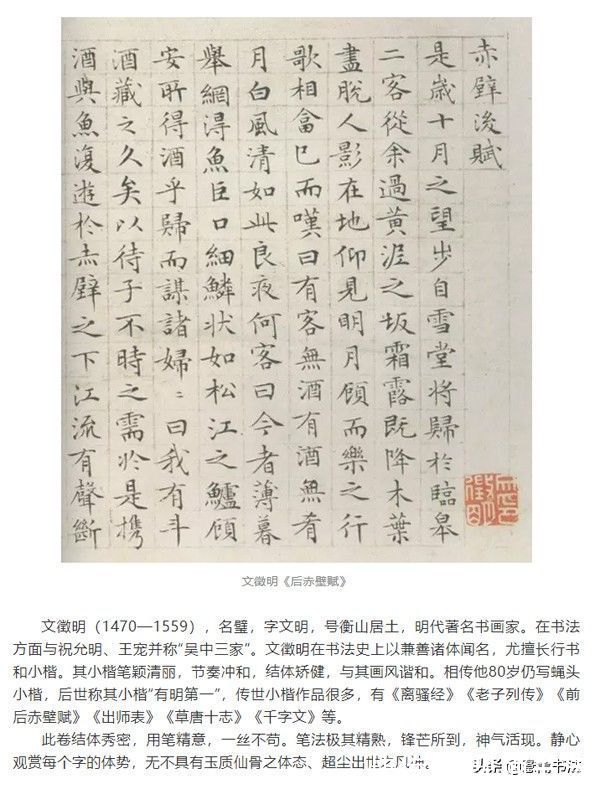 赤壁後賦
是歲十月之望步自雪堂將歸於臨皋
二客從余過黃泥之坂霜露既降木葉
盡脫人影在地仰見明月顧而樂之行
歌相畣已而嘆曰有客無酒有酒無肴
月白風清如此良夜何客曰今者薄暮
舉網得魚巨口細鱗狀如松江之鱸顧
安所得酒乎歸而謀諸婦〻曰我有斗
酒藏之久矣以待子不時之需於是携
酒與魚復遊於赤壁之下江流有聲斷
文徵明《后赤壁赋》
文徵明（1470—1559），名璧，字文明，号衡山居士，明代著名书画家。在书法
方面与祝允明、王宠并称“吴中三家”。文徵明在书法史上以兼善诸体闻名，尤擅长行书
和小楷。其小楷笔颖清丽，节奏冲和，结体矫健，与其画风谐和。相传他80岁仍写蝇头
小楷，后世称其小楷“有明第一”，传世小楷作品很多，有《离骚经》《老子列传》《前
后赤壁赋》《出师表》《草唐十志》《千字文》等。
此卷结体秀密，用笔精意，一丝不苟。笔法极其精熟，锋芒所到，神气活现。静心
观赏每个字的体势，无不具有玉质仙骨之体态、超尘出世之风
头条